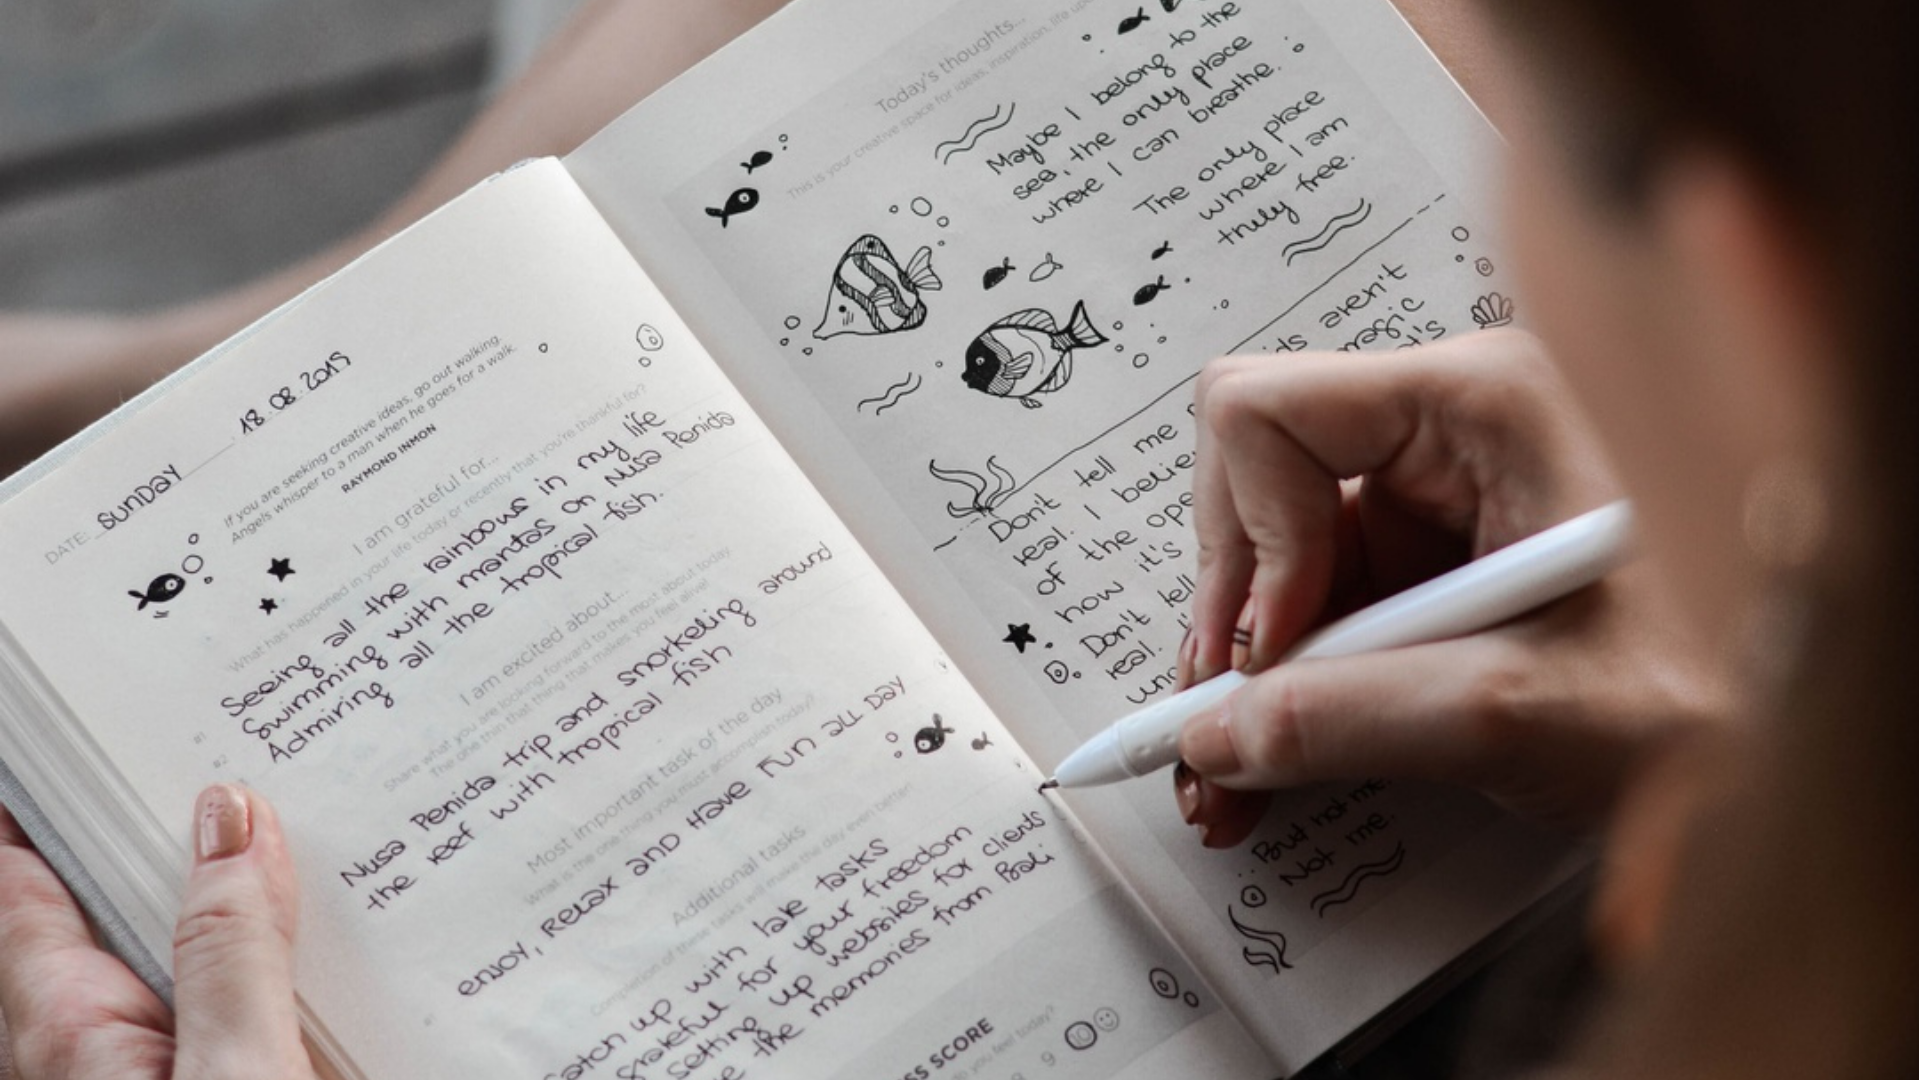 DATE: SUNDAY 18.08.2019
If you are seeking creative ideas, go out walking.
Angels whisper to a man when he goes for a walk.
RAYMOND INMON
I am grateful for...
What has happened in your life today or recently that you're thankful for?
#1 Seeing all the rainbows in my life
#2 Swimming with mantas on Nusa Penida
Admiring all the tropical fish.
I am excited about...
Share what you are looking forward to the most about today
The one thing that makes you feel alive!
Nusa Penida trip and snorkeling around
the reef with tropical fish
Most important task of the day
What is the one thing you must accomplish today?
ENJOY, RELAX AND HAVE FUN ALL DAY
Additional tasks
Completion of these tasks will make the day even better
up with late tasks
grateful for your freedom
Setting up websites for clients
the memories from Bali
SCORE
you feel today?
9 10
Today's thoughts...
This is your creative space for ideas, inspiration, life
Maybe I belong to the
sea, the only place
where I can breathe.
The only place
where I am
truly free.
aren't
magic
Don't tell me
real. I
of the
how it's
Don't tell
real.
But not me.
Not me.